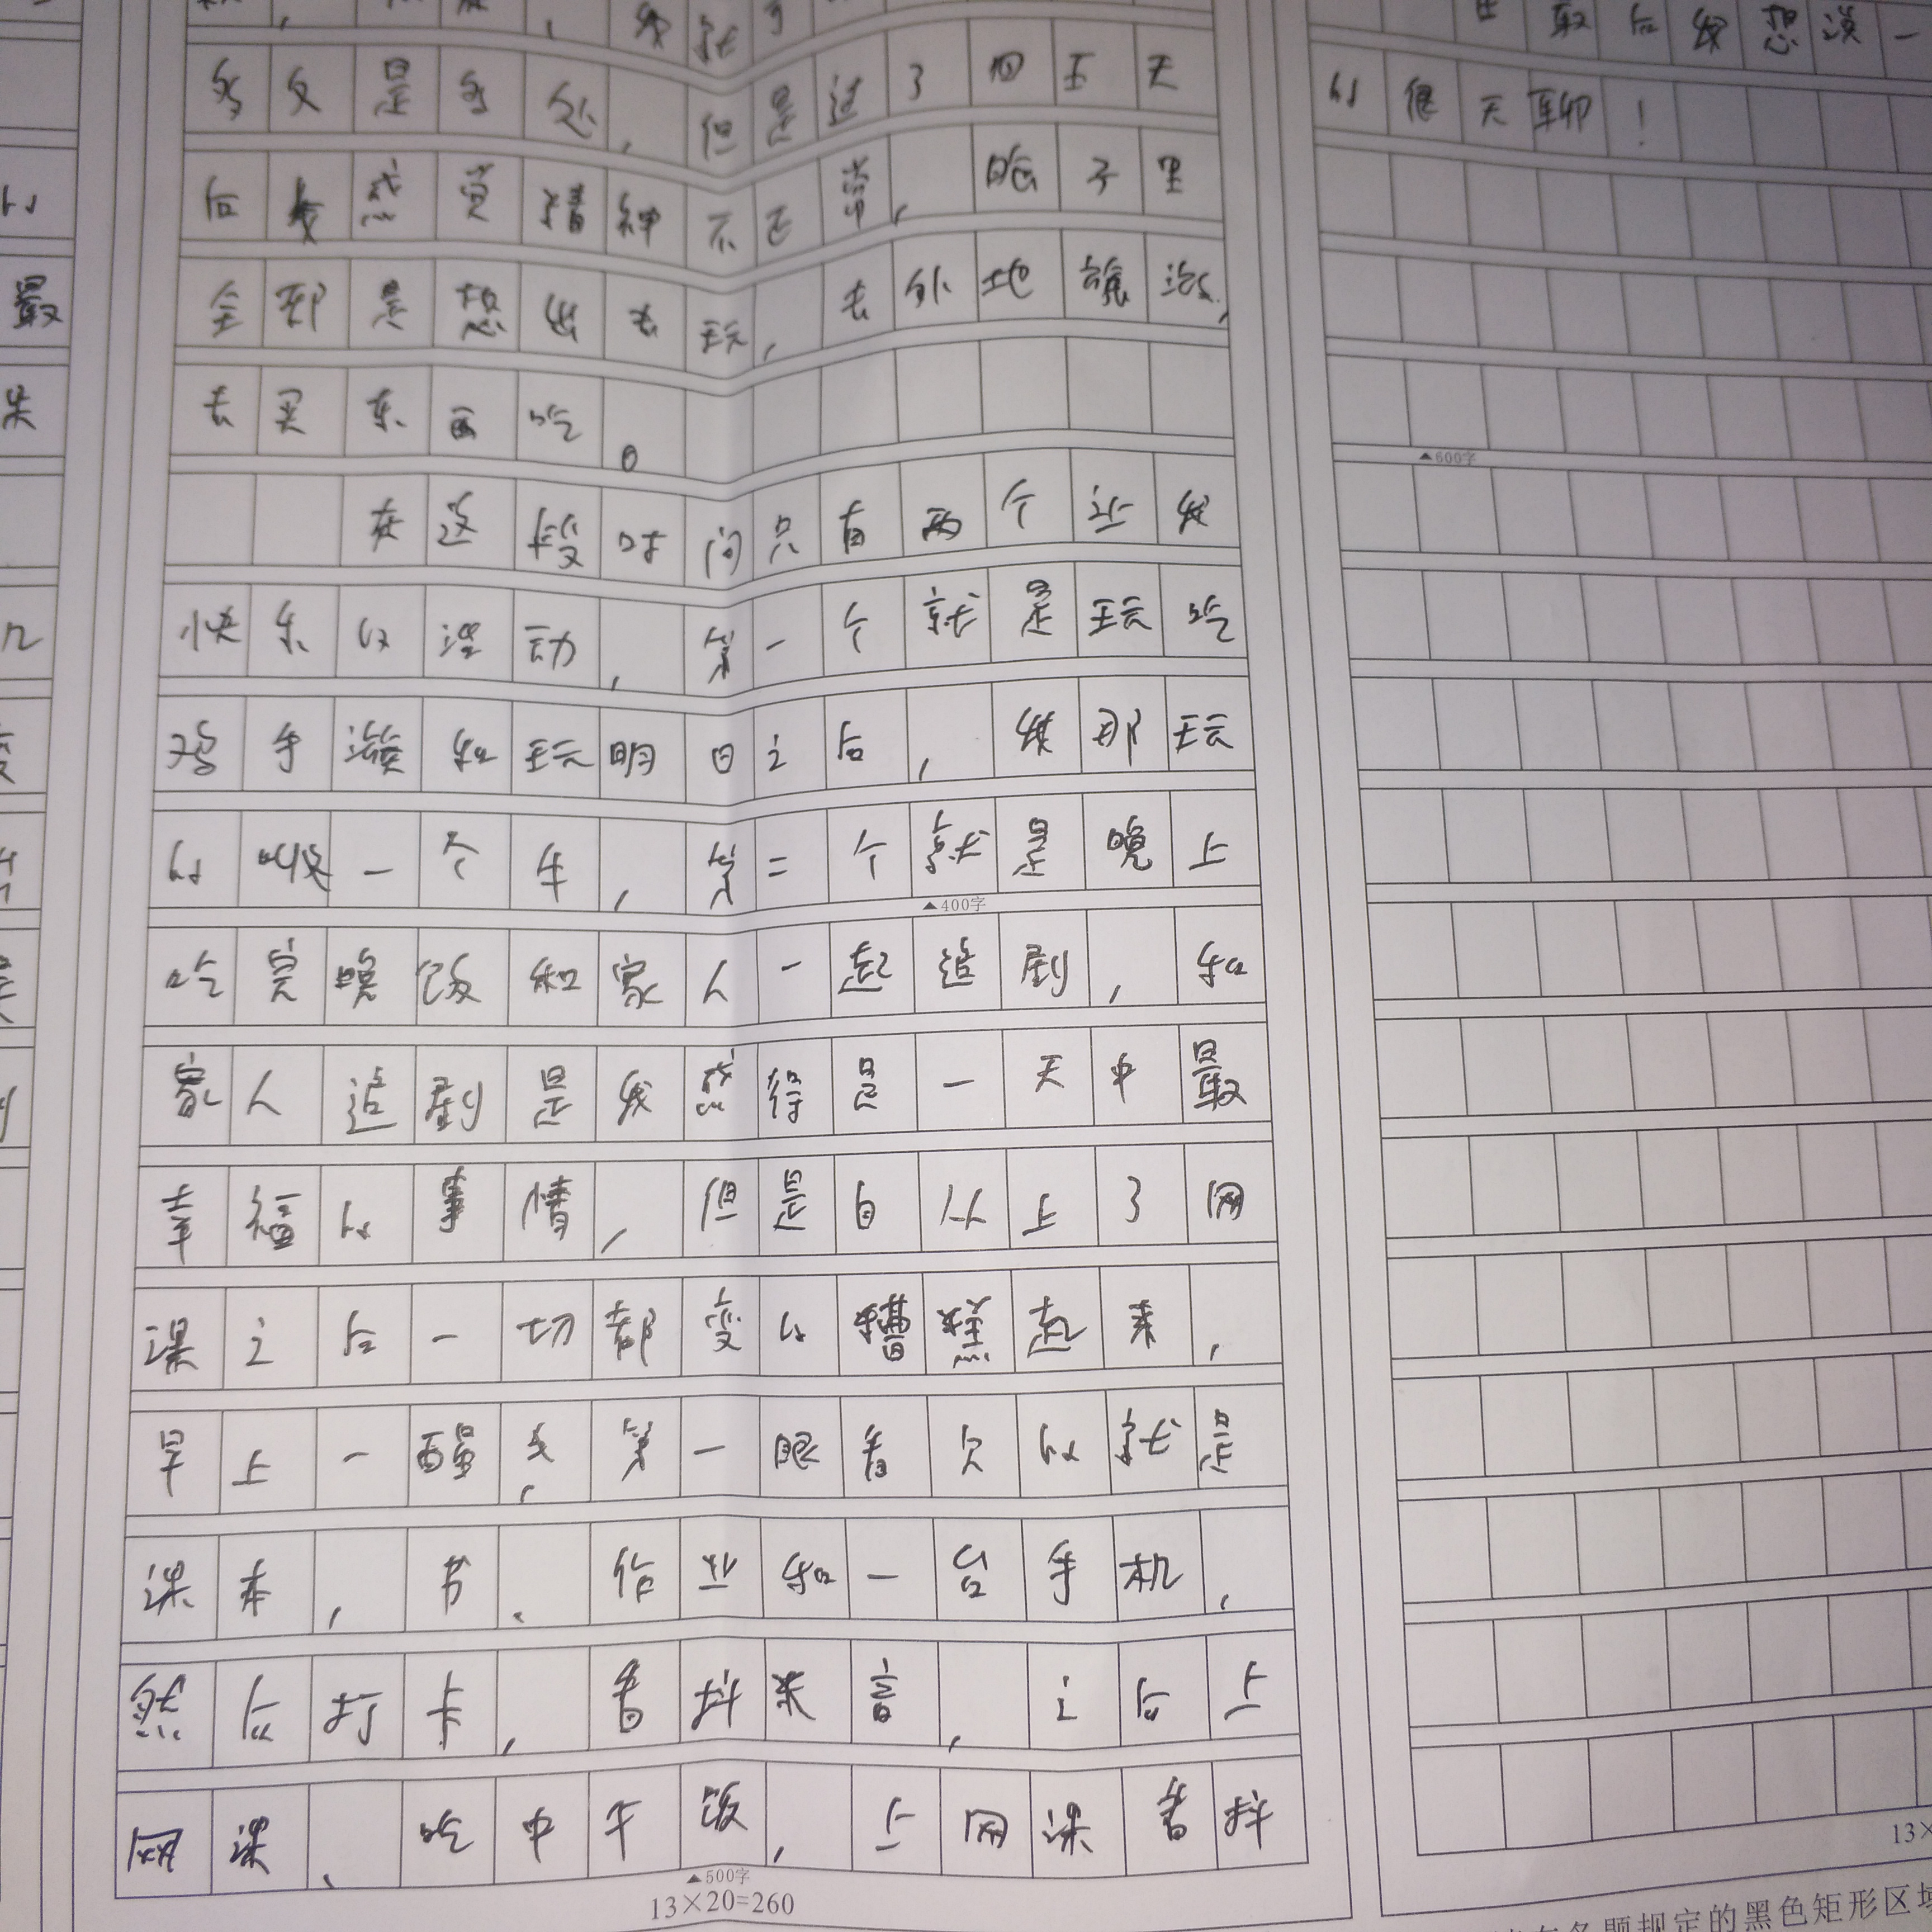 多又是多处，但是过了四五天
后我感觉精神不正常，脑子里
全部是想出去玩，去外地旅游，
去买东西吃。
在这段时间只有两个让我
快乐的活动，第一个就是玩吃
鸡手游和玩明日之后，我那玩
的叫一个牛，第二个就是晚上
吃完晚饭和家人一起追剧，和
家人追剧是我感得是一天中最
幸福的事情，但是自从上了网
课之后一切都变的糟糕起来，
早上一醒来，第一眼看欠的就是
课本，书、作业和一台手机，
然后打卡，看抖来音，之后上
网课、吃中午饭，上网课看抖
▲400字
▲500字
13×20=260
最后我想说一
的很无聊！
▲600字
规定的黑色矩形区域